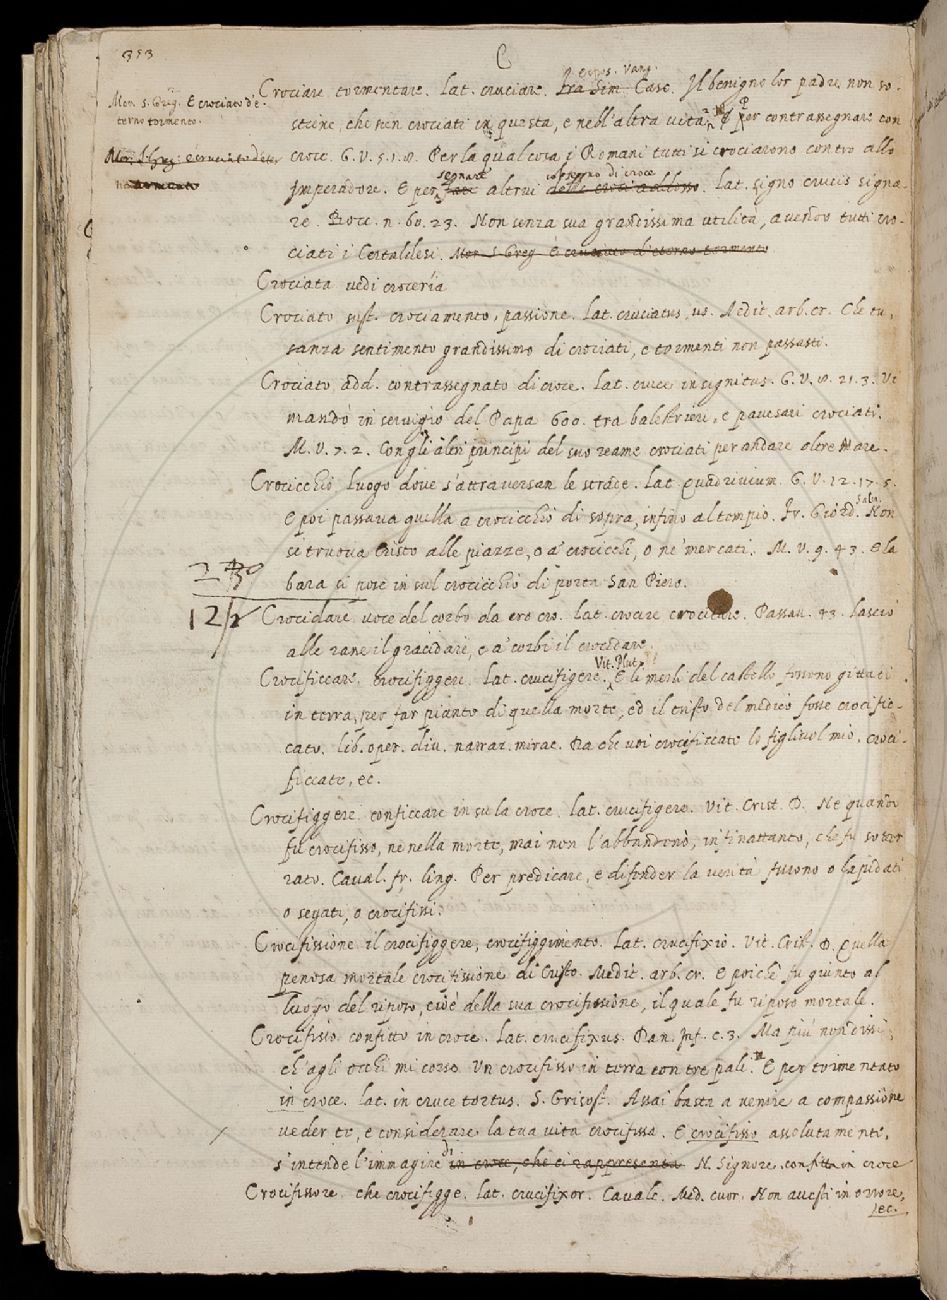 353
C
Mor. S. Greg. E crociato d'e-
terno tormento.
Crociare tormentare. Lat. cruciare. Caso. Il benigno lor padre non so-
stiene, che sien crociati in questa, e nell'altra vita. E per contrassegnare con
croce. G. V. 5. 1. Per la qual cosa i Romani tutti si crociarono contro allo
segnare
Imperadore. E per altrui Lat. signo crucis signa-
re. Bocc. n. 60. 23. Non senza sua grandissima utilità, avendo tutti cro-
ciati i Certaldesi. Mor. S. Greg. E cruciato d'eterno tormento
Crociata vedi croceria
Crociato sust. crociamento, passione. Lat. cruciatus, us. Medit. arb. cr. Che tu,
sanza sentimento grandissimo di crociati, e tormenti non passasti.
Crociato add. contrassegnato di croce. Lat. cruce insignitus. G. V. 8. 21. 3. Vi
mandò in servigio del Papa 600. tra balestrieri, e pavesari crociati.
M. V. 7. 2. Con gli altri principi del suo reame crociati per andare oltre Mare.
Crocicchio, luogo dove s'attraversan le strade. Lat. Quadrivium. G. V. 12. 17. 5.
E poi passava quella a crocicchio di sopra, infino al tempio. Fr. Giord. Salv. Non
si truova Cristo alle piazze, o a' crocicchi, o ne' mercati. M. V. 9. 43. E la
bara si pose in sul crocicchio di porta San Piero.
Crocidare voce del corbo da cro cro. Lat. crocire crocitare. Passav. 43. Lasciò
alle rane il gracidare, e a' corbi il crocidare.
Vit. Plut.
Crocificcare, crocifiggere. Lat. crucifigere. E li merli del castello furono gittati
in terra, per far pianto di quella morte, ed il tristo del medico fosse crocific-
cato. Lib. oper. div. narraz. mirac. Da che voi crocificcate lo figliuol mio, croci-
ficcate, ec.
Crocifiggere conficcare in su la croce. Lat. crucifigere. Vit. Crist. D. Nè quando
fu crocifisso, nè nella morte, mai non l'abbandonò, infinattanto, che fu sotter
rato. Caval. fr. ling. Per predicare, e difender la verità furono o lapidati
o segati, o crocifissi.
Crocifissione il crocifiggere, crocifiggimento. Lat. crucifixio. Vit. Crist. D. Quella
penosa mortale crocifissione di Cristo. Medit. arb. cr. E poichè fu giunto al
luogo del riposo, cioè della sua crocifissione, il quale fu riposo mortale.
Crocifisso confitto in croce. Lat. crucifixus. Dan. Inf. c. 3. Ma più non dissi,
ch'agli occhi mi corse Un crocifisso in terra con tre pali. E per tormentato
in croce. Lat. in cruce tortus. S. Grisost. Assai basta a venire a compassione
veder te, e considerare la tua vita crocifissa. E crocifisso assolutamente,
s'intende l'immagine di in croce, che ci rappresenta N. Signore confitto in croce
Crocifissore che crocifigge. Lat. crucifixor. Cavalc. Med. cuor. Non avesti in orrore,
ec.